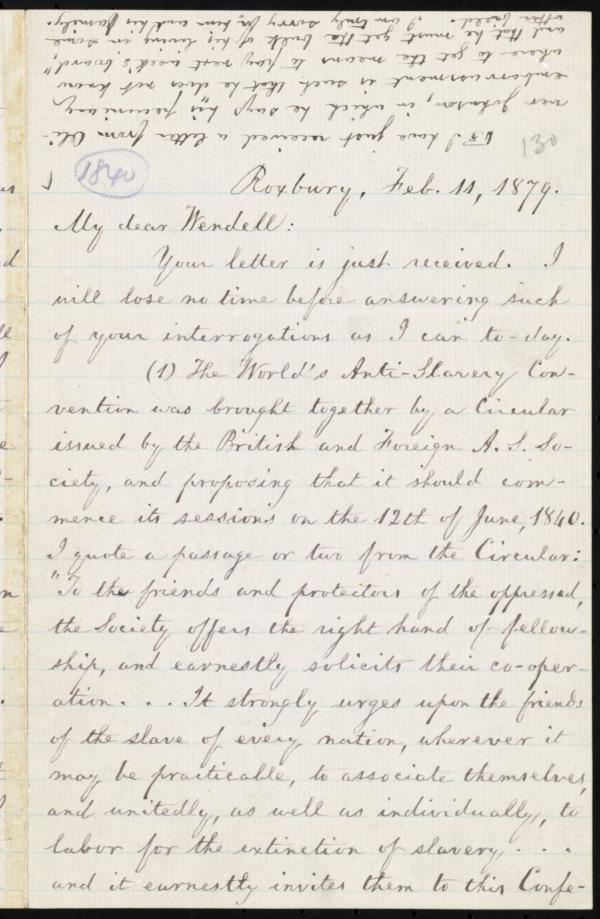 I have just received a letter from Oli-
ver Johnson, in which he says his pecuniary
embarrassment is such that he does not know
where to get the means to pay next week's board,
and that he must get the bulk of his living in some
other field. I am truly sorry for him and his family.
130
1840
Roxbury, Feb. 11, 1879.
My dear Wendell:
Your letter is just received. I
will lose no time before answering such
of your interrogations as I can to-day.
(1) The World's Anti-Slavery Con-
vention was brought together by a Circular
issued by the British and Foreign A. S. So-
ciety, and proposing that it should com-
mence its sessions on the 12th of June, 1840.
I quote a passage or two from the Circular:
"To the friends and protectors of the oppressed,
the Society offers the right hand of fellow-
ship, and earnestly solicits their co-oper-
ation. . . It strongly urges upon the friends
of the slave of every nation, wherever it
may be practicable, to associate themselves,
and unitedly, as well as individually, to
labor for the extinction of slavery, . . .
and it earnestly invites them to this Confe-